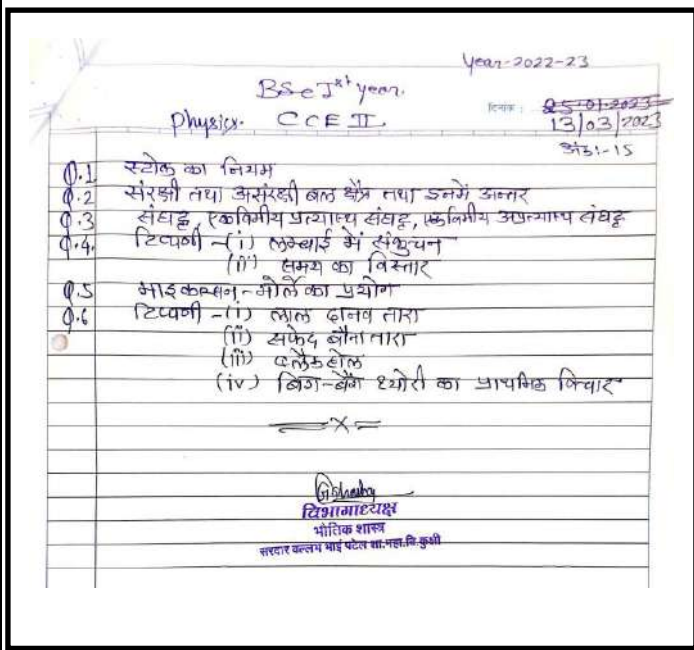 Year-2022-23
BSc Ist year.
Physics. CCE II.
दिनांक : 25-01-2023
13/03/2023
अंक:-15
Q.1 स्टोक का नियम
Q.2 संरक्षी तथा असंरक्षी बल क्षेत्र तथा इनमें अन्तर
Q.3 संघट्ट, एकविमीय प्रत्यास्थ संघट्ट, एकविमीय अप्रत्यास्थ संघट्ट
Q.4. टिप्पणी - (i) लम्बाई में संकुचन
(ii) समय का विस्तार
Q.5 माइकल्सन-मोर्ले का प्रयोग
Q.6 टिप्पणी - (i) लाल दानव तारा
(ii) सफेद बौना तारा
(iii) ब्लैक होल
(iv) बिग-बैंग थ्योरी का प्राथमिक विचार
X
विभागाध्यक्ष
भौतिक शास्त्र
सरदार वल्लभ भाई पटेल शा.महा.वि.कुक्षी